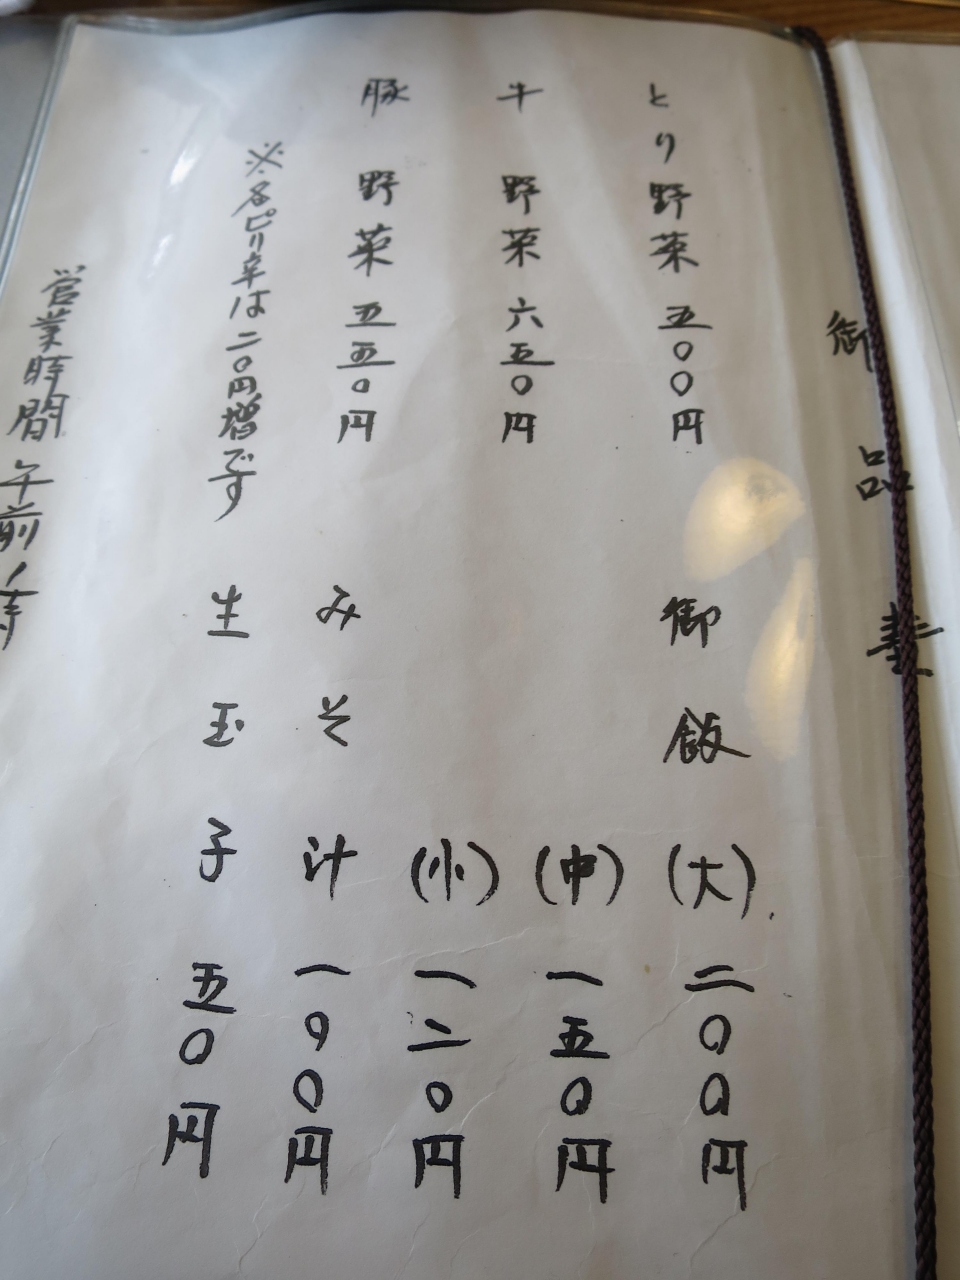 御品書
とり野菜 五〇〇円
牛野菜 六五〇円
豚野菜 五五〇円
※各ピリ辛は二〇円増です
御飯(大) 二〇〇円
(中) 一五〇円
(小) 一二〇円
みそ汁 一〇〇円
生玉子 五〇円
営業時間 午前